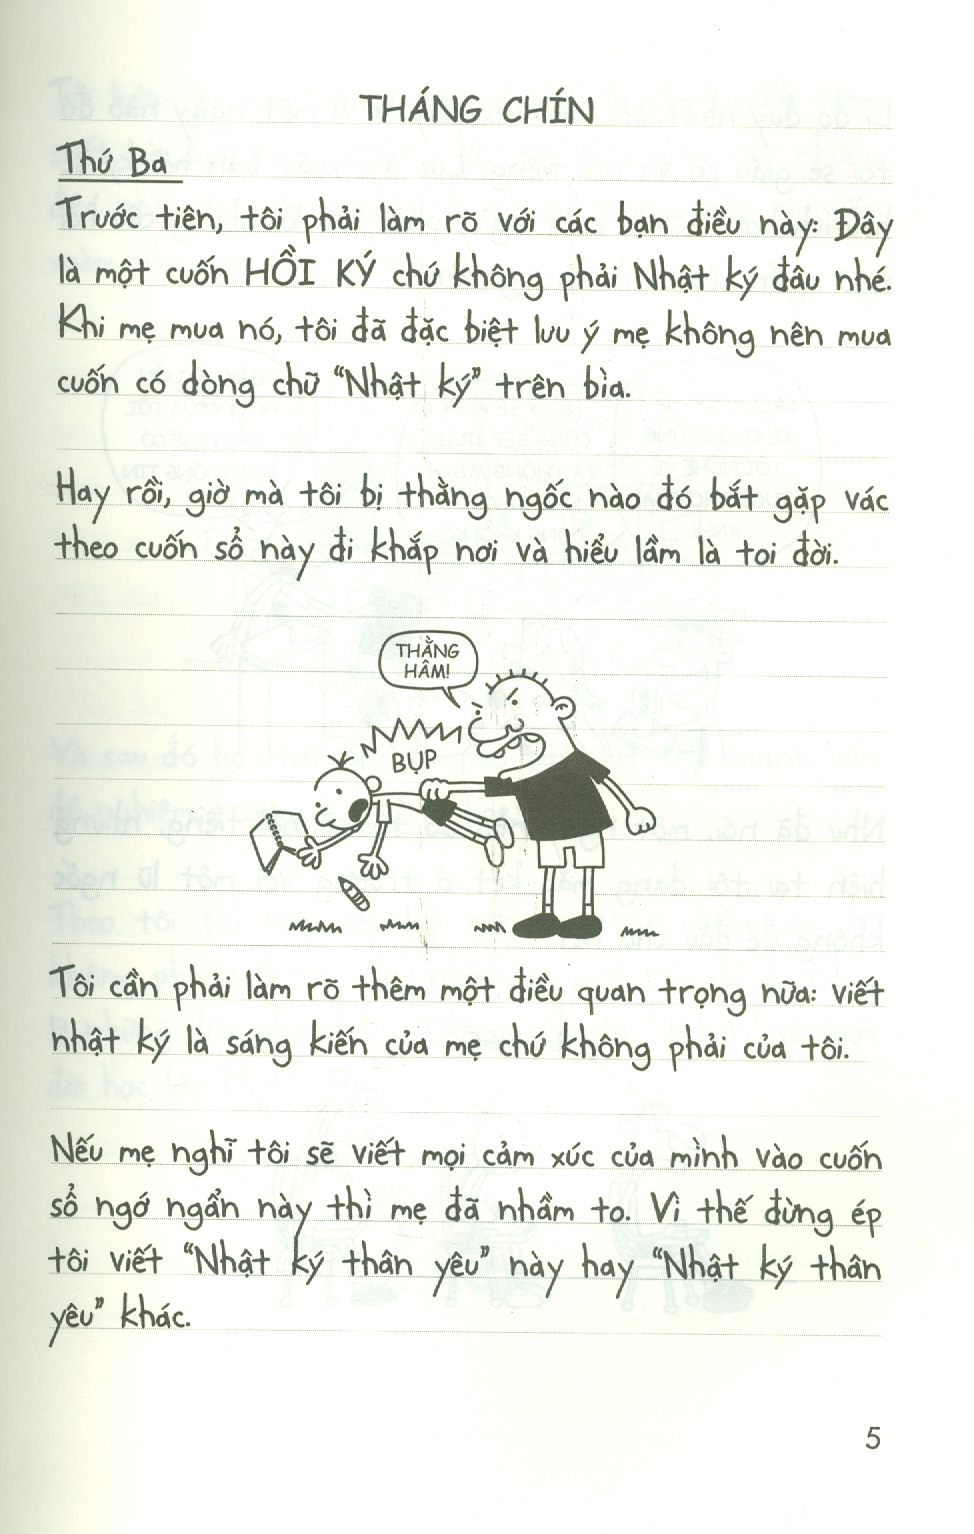 THÁNG CHÍN
Thứ Ba
Trước tiên, tôi phải làm rõ với các bạn điều này: Đây
là một cuốn HỒI KÝ chứ không phải Nhật ký đâu nhé.
Khi mẹ mua nó, tôi đã đặc biệt lưu ý mẹ không nên mua
cuốn có dòng chữ “Nhật ký” trên bìa.
Hay rồi, giờ mà tôi bị thằng ngốc nào đó bắt gặp vác
theo cuốn sổ này đi khắp nơi và hiểu lầm là toi đời.
THẰNG
HÂM!
BỤP
Tôi cần phải làm rõ thêm một điều quan trọng nữa: viết
nhật ký là sáng kiến của mẹ chứ không phải của tôi.
Nếu mẹ nghĩ tôi sẽ viết mọi cảm xúc của mình vào cuốn
sổ ngớ ngẩn này thì mẹ đã nhầm to. Vì thế đừng ép
tôi viết “Nhật ký thân yêu” này hay “Nhật ký thân
yêu” khác.
5